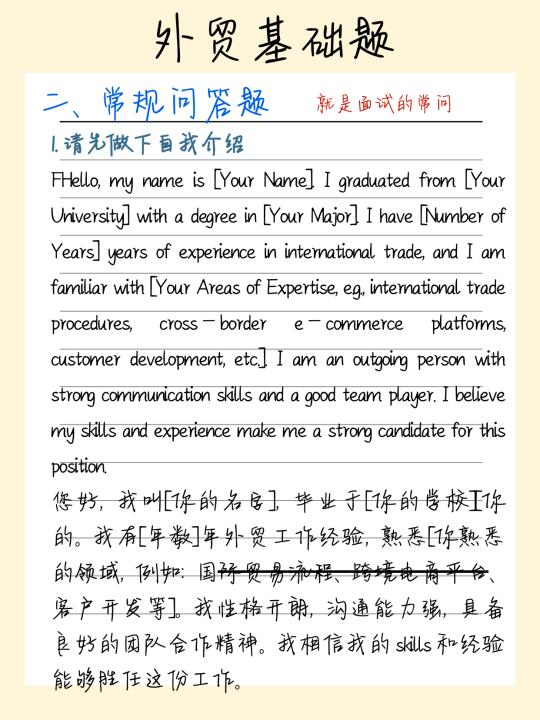 外贸基础题
二、常规问答题 就是面试的常问
1.请先做下自我介绍
FHello, my name is [Your Name]. I graduated from [Your
University] with a degree in [Your Major]. I have [Number of
Years] years of experience in international trade, and I am
familiar with [Your Areas of Expertise, e.g., international trade
procedures, cross-border e-commerce platforms,
customer development, etc.]. I am an outgoing person with
strong communication skills and a good team player. I believe
my skills and experience make me a strong candidate for this
position.
您好，我叫[你的名字]，毕业于[你的学校][你
的。我有[年数]年外贸工作经验，熟悉[你熟悉
的领域，例如：国际贸易流程、跨境电商平台、
客户开发等]。我性格开朗，沟通能力强，具备
良好的团队合作精神。我相信我的skills和经验
能够胜任这份工作。